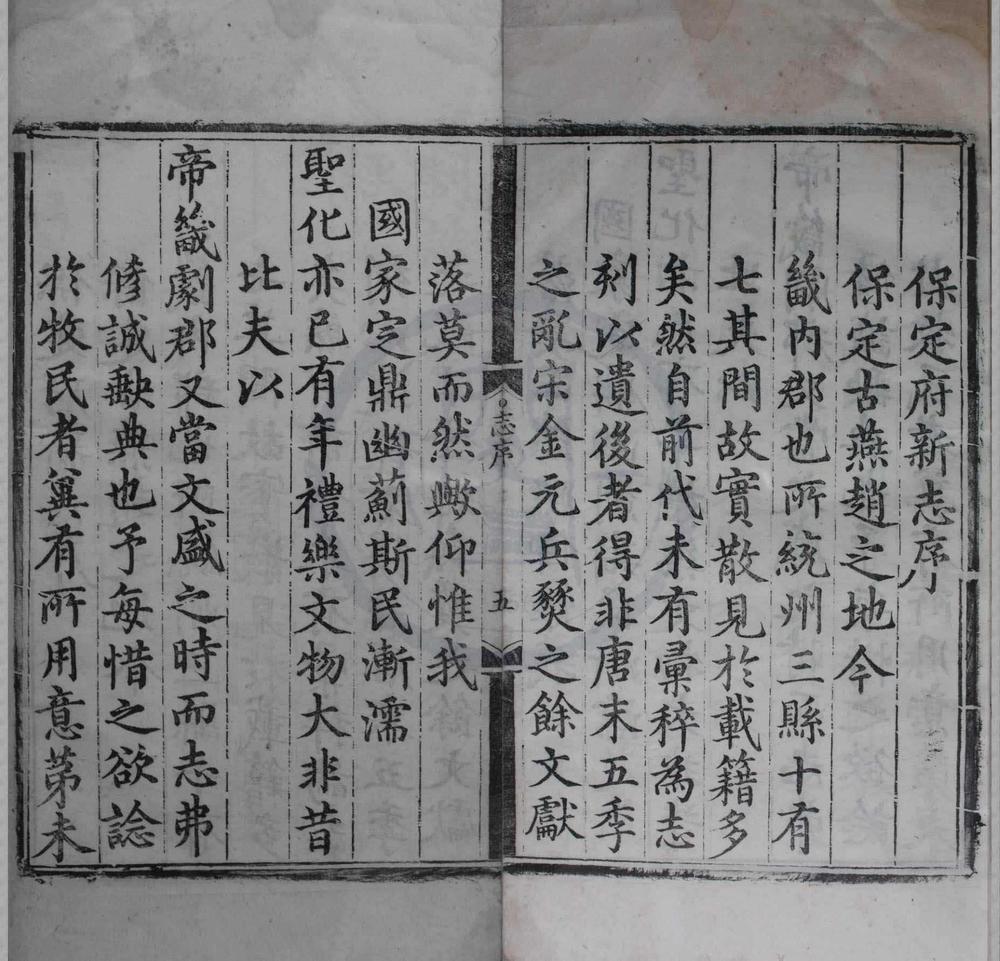 保定府新志序
保定古燕趙之地今
畿內郡也所統州三縣十有
七其間故實散見於載籍多
矣然自前代未有彙稡為志
刻以遺後者得非唐末五季
之亂宋金元兵燹之餘文獻
志序
五
落莫而然歟仰惟我
國家定鼎幽薊斯民漸濡
聖化亦已有年禮樂文物大非昔
比夫以
帝畿劇郡又當文盛之時而志弗
脩誠缺典也予每惜之欲諗
於牧民者冀有所用意第未